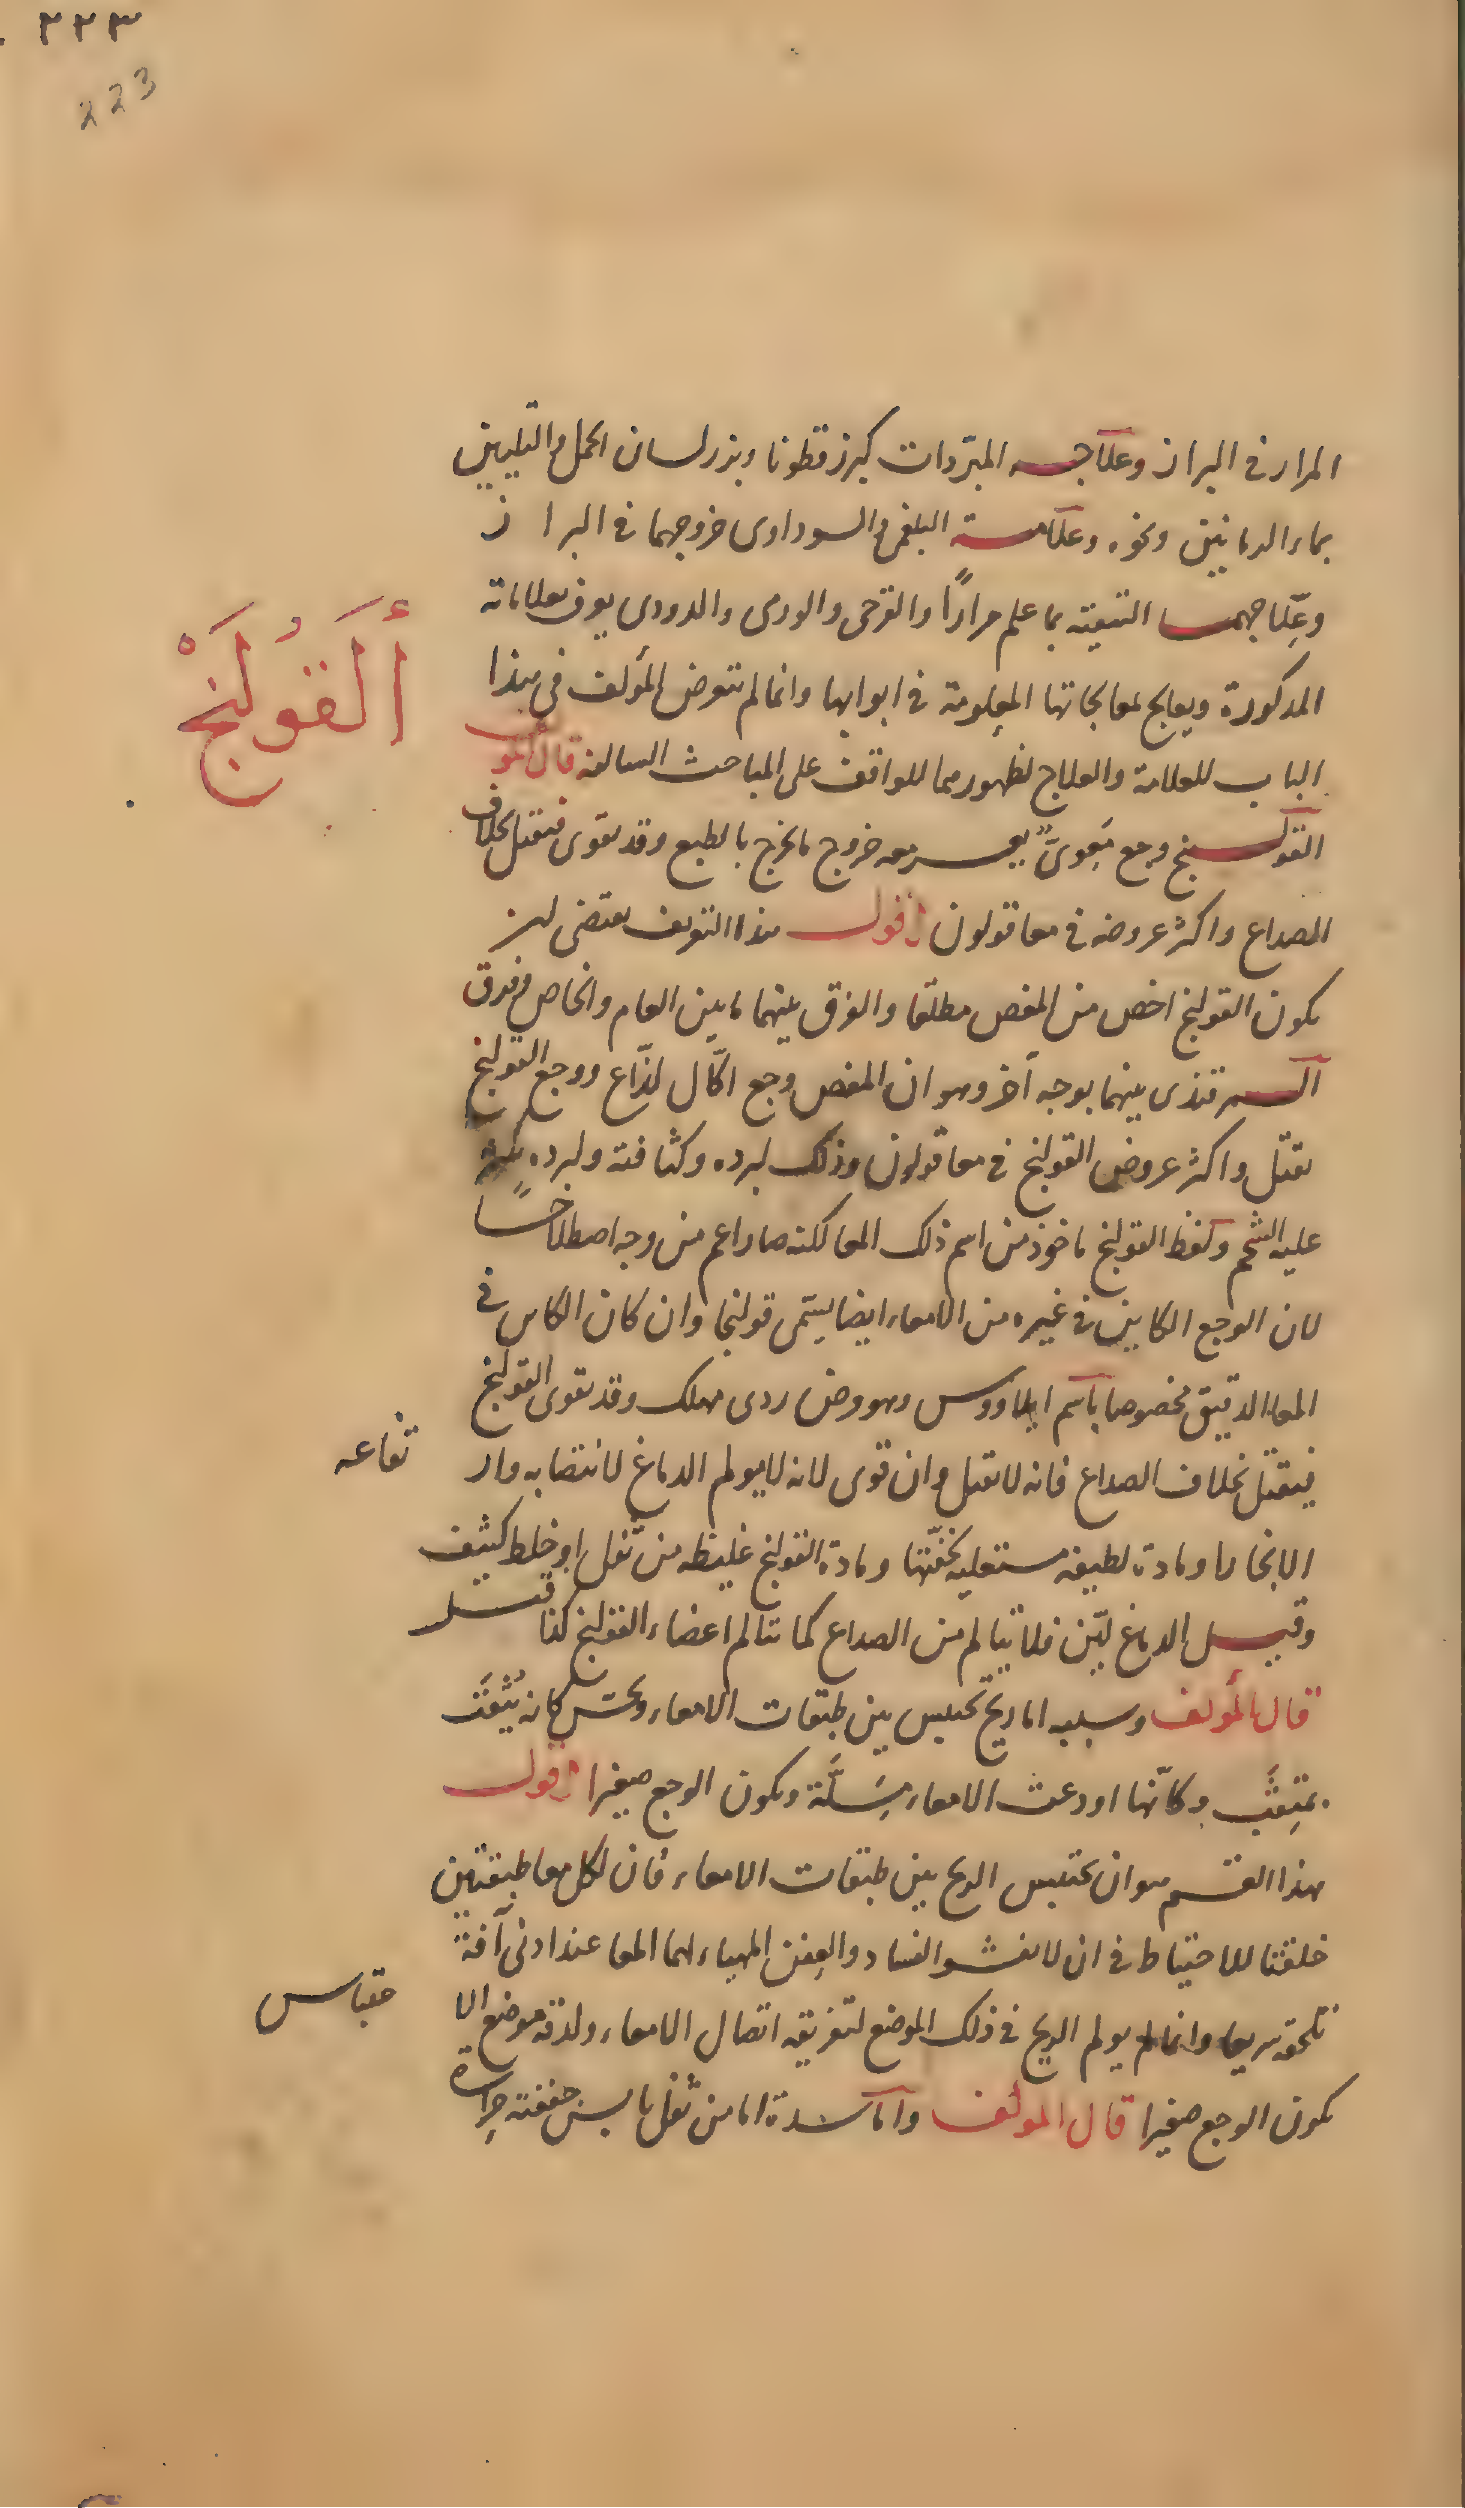 ٢٢٣
223
المرار فى البراز وعلاجه المبرّدات كبزر قطونا وبزر لسان الحمل والتليين
بماء الرمانين ونحوه وعلامة البلغمى والسوداوى خروجهما فى البراز
وعِلاجهما التنقية بما علم مراراً والقرحى والورمى والدودى يعرف بعلاماته
المذكورة ويعالج بمعالجاتها المعلومة فى ابوابها وانما لم يتعرض المؤلف فى هذا
الباب للعلامة والعلاج لظهورهما للواقف على المباحث السالفة قال المؤلف
القولنج وجع مَعِوىٌّ يعسر معه خروج ما يخرج بالطبع وقد يقوى فيقتل بخلاف
الصداع واكثر عروضه فى معا قولون اقول هذا التعريف يقتضى ان
يكون القولنج اخص من المغص مطلقا والفرق بينهما ما بين العام والخاص وفرق
السمرقندى بينهما بوجه آخر وهو ان المغص وجع اكّال لذّاع ووجع القولنج
يقتل واكثر عروض القولنج فى معا قولون وذلك لبرده وكثافته ولبرده يكثر
عليه الشحم ولفظ القولنج ماخوذ من اسم ذلك المعا لكنه صار اعم من وجه اصطلاحاً
لان الوجع الكاين فى غيره من الامعاء ايضا يسمّى قولنجا وان كان الكاين فى
المعا الدقيق مخصوصا باسم ايلاووس وهو مرض ردى مهلك وقد يقوى القولنج
فيقتل بخلاف الصداع فانه لا يقتل وان قوى لانه لا يولم الدماغ لانتصابه وار
تفاعه
الا بخار او مادة لطيفة مستعلية بخفّتها ومادة القولنج غليظه من ثفل او خلط كثيف
وقيل الدماغ ليّن فلا يتالم من الصداع كما تتالم اعضاء القولنج كذا قيل
قال المؤلف وسببه اما ريح تحتبس بين طبقات الامعاء ويحسّ كانه يُثقَب
بمِثقَب وكانّها اودعت الامعاء مِسَلَّة ويكون الوجع صغيرا اقول
هذا القسم هو ان يحتبس الريح بين طبقات الامعاء فان لكل معا طبقتين
خلقتا للاحتياط فى ان لا يفشو الفساد والعفن المهياء لهما المعا عند ادنى آفة
تلحقه سريعا وانما يولم الريح فى ذلك الموضع لتفريقه اتصال الامعاء ولدقة موضع الا
حتباس
يكون الوجع صغيرا قال المؤلف واما سدة اما من ثفل يابس جففته حرارة
أَلْقُولَنْجْ